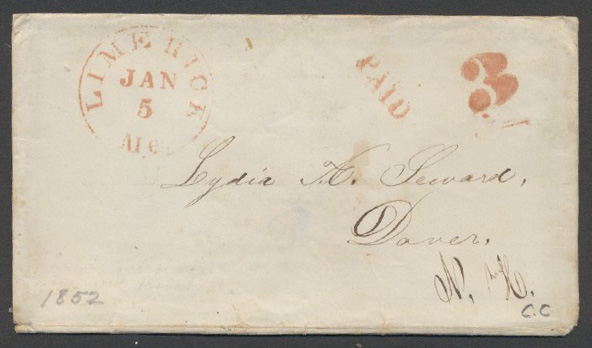 LIMERICK
JAN
5
Me.
PAID
3
Lydia A. Seward,
Dover,
N. H.
1852
C.C